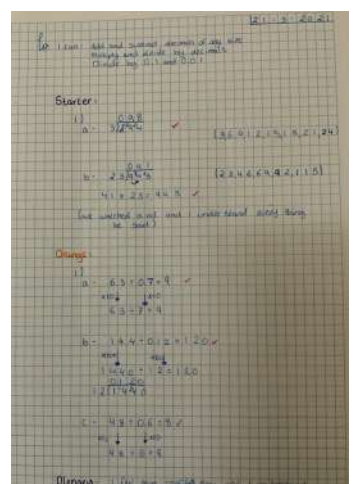 21 - 5 - 2021
I can: Add and subtract decimals of any size
Multiply and divide by decimals
Divide by 0.1 and 0.01
Starter:
1)
098
a- 3
(3,6,9,12,15,18,21,24)
041
b- 23
(23,46,69,92,115)
41 × 23 = 943
(we watched a vid and I understand every thing
he said)
Orange:
1)
a- 6.3 ÷ 0.7 = 9
×10 ×10
63 ÷ 7 = 9
b- 14.4 ÷ 0.12 = 120
×100 ×100
1440 ÷ 12 = 120
0120
12
c- 4.8 ÷ 0.6 = 8
×10 ×10
48 ÷ 6 = 8
Plenary: